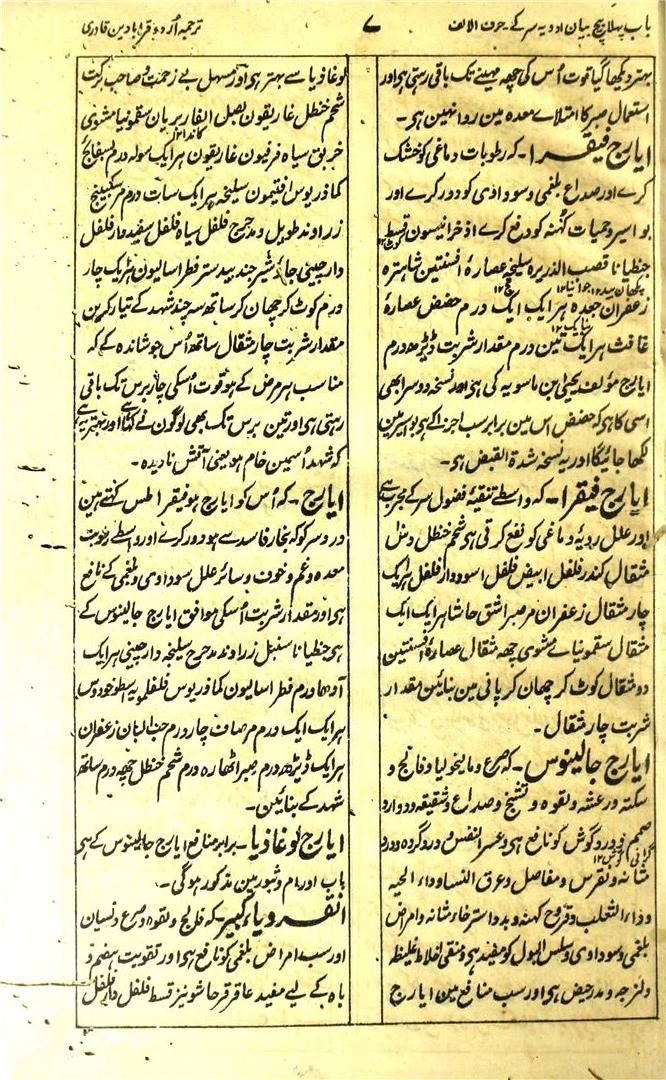 باب پہلا بیچ بیان ادویہ سر کے۔ حرف الالف
۷
ترجمہ اُردو قرابادین قادری
بہتر دیکھا گیا قوت اُس کی چھہ مہینے تک باقی رہتی ہی اور
استعمال صبر کا امتلاے معدہ مین روا نہین ہی۔
ایارج فیقرا۔ کہ رطوبات دماغی کو خشک
کرے اور صداع بلغمی و سوداوی کو دور کرے اور
بواسیر و حمیات کہنہ کو دفع کرے اذخر انیسون قسط
جنطیانا قصب الذریرہ سلیخہ عصارۂ افسنتین شاہترہ
زعفران جعدہ ہر ایک ایک درم حضض عصارۂ
غافث ہر ایک تین درم مقدار شربت ڈیڑھ درم
ایارج مؤلف یحییٰ بن ماسویہ کی ہی اور نسخہ دوسرا بھی
اسی کا ہی کہ حضض اس مین برابر سب اجزا کے ہی بواسیر مین
لکھا جائیگا اور یہ نسخہ شدۃ القبض ہی۔
ایارج فیقرا۔ کہ واسطے تنقیۂ فضول سر کے مجرب ہے
اور علل ردیۂ دماغی کو نفع کرتی ہی شحم حنظل دس
مثقال کندر فلفل ابیض فلفل اسود دار فلفل ہر ایک
چار مثقال زعفران مر صبر اشق حاشا ہر ایک ایک
مثقال سقمونیاے مشوی چھہ مثقال عصارۂ افسنتین
دو مثقال کوٹ کر چھان کر پانی مین بنائین مقدار
شربت چار مثقال۔
ایارج جالینوس۔ کہ صرع و مالیخولیا و فالج و
سکتہ و رعشہ و لقوہ و تشنج و صداع و شقیقہ و دوار و
صمم و درد گوش کو نافع ہی و عسر النفس و درد گردہ و درد
مثانہ و نقرس و مفاصل و عرق النسا و داء الحیہ
و داء الثعلب و قروح کہنہ و بد و استرخاء مثانہ و امراض
بلغمی و سوداوی و سلس البول کو مفید ہی و منقی اخلاط غلیظہ
و لزجہ و مدر حیض ہی اور سب منافع مین ایارج
لوغاذیا سے بہتر ہی اور مسہل بے زحمت و صاحب برکت
شحم حنظل غاریقون بصل الفار بریان سقمونیا مشوی
خربق سیاہ فرفیون غاریقون ہر ایک سولہ درم بسفائج
کماذریوس افتیمون سلیخہ ہر ایک سات درم مر سکبینج
زراوند طویل و مدحرج فلفل سیاہ فلفل سفید دار فلفل
دارچینی جاؤشیر جند بیدستر فطراسالیون ہر یک چار
درم کوٹ کر چھان کر ساتھ سہ چند شہد کے تیار کرین
مقدار شربت چار مثقال ساتھ اُس جوشاندہ کے کہ
مناسب ہر مرض کے ہو قوت اُسکی چار برس تک باقی
رہتی ہی اور تین برس تک بھی لوگون نے کہا ہے اور بہتر یہ ہے
کہ شہد اُسمین خام ہو یعنی آتش نادیدہ۔
ایارج۔ کہ اُس کو ایارج ہو فیقراطس کہتے ہین
درد سر کو کہ بخار فاسد سے ہو دور کرے اور واسطے رطوبت
معدہ و غم و خوف و سائر علل سوداوی و بلغمی کے نافع
ہی اور مقدار شربت اُسکی موافق ایارج جالینوس کے
ہی جنطیانا سنبل زراوند مدحرج سلیخہ دارچینی ہر ایک
آدھا درم فطراسالیون کماذریوس فلفلمویہ اسطوخودوس
ہر ایک ایک درم مر صاف چار درم حب البان زعفران
ہر ایک ڈیڑھ درم صبر اٹھارہ درم شحم حنظل چھہ درم ساتھ
شہد کے بنائین۔
ایارج لوغاذیا۔ برابر منافع ایارج جالینوس کے ہی
باب اورام و ثبور مین مذکور ہوگی۔
انقرویاء کبیر۔ کہ فالج و لقوہ و صرع و نسیان
اور سب امراض بلغمی کو نافع ہی اور تقویت ہضم و
باہ کے لیے مفید عاقرقرحا شونیز قسط فلفل دار فلفل